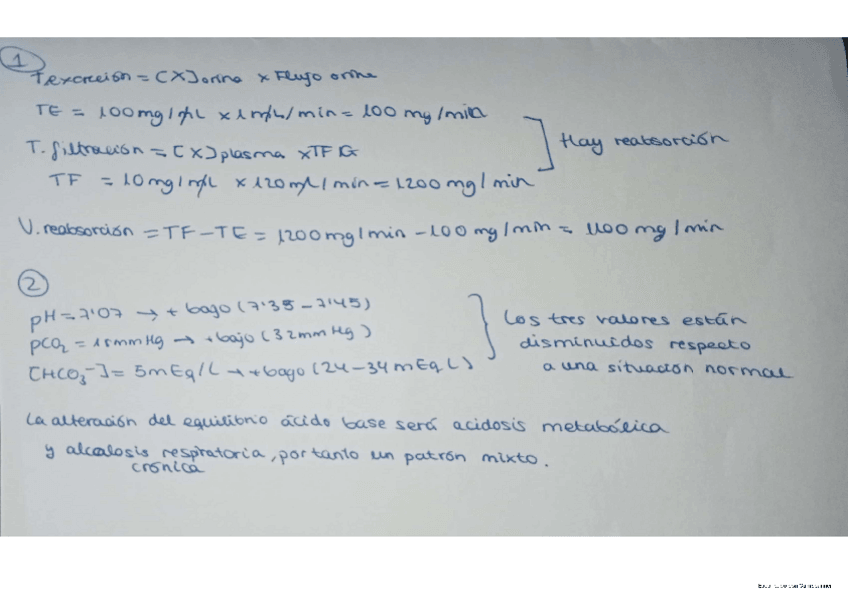 1
T excreción = [X] orina x Flujo orina
TE = 100 mg/mL x 1 mL/min = 100 mg/min
Hay reabsorción
T. filtración = [X] plasma x TFG
TF = 10 mg/mL x 120 mL/min = 1200 mg/min
V. reabsorción = TF - TE = 1200 mg/min - 100 mg/min = 1100 mg/min
2
pH = 7'07 → + bajo (7'35 - 7'45)
pCO2 = 15 mmHg → + bajo (32 mmHg)
[HCO3-] = 5 mEq/L → + bajo (24 - 34 mEq L)
Los tres valores están
disminuidos respecto
a una situación normal
La alteración del equilibrio ácido base será acidosis metabólica
y alcalosis respiratoria, por tanto un patrón mixto.
crónica